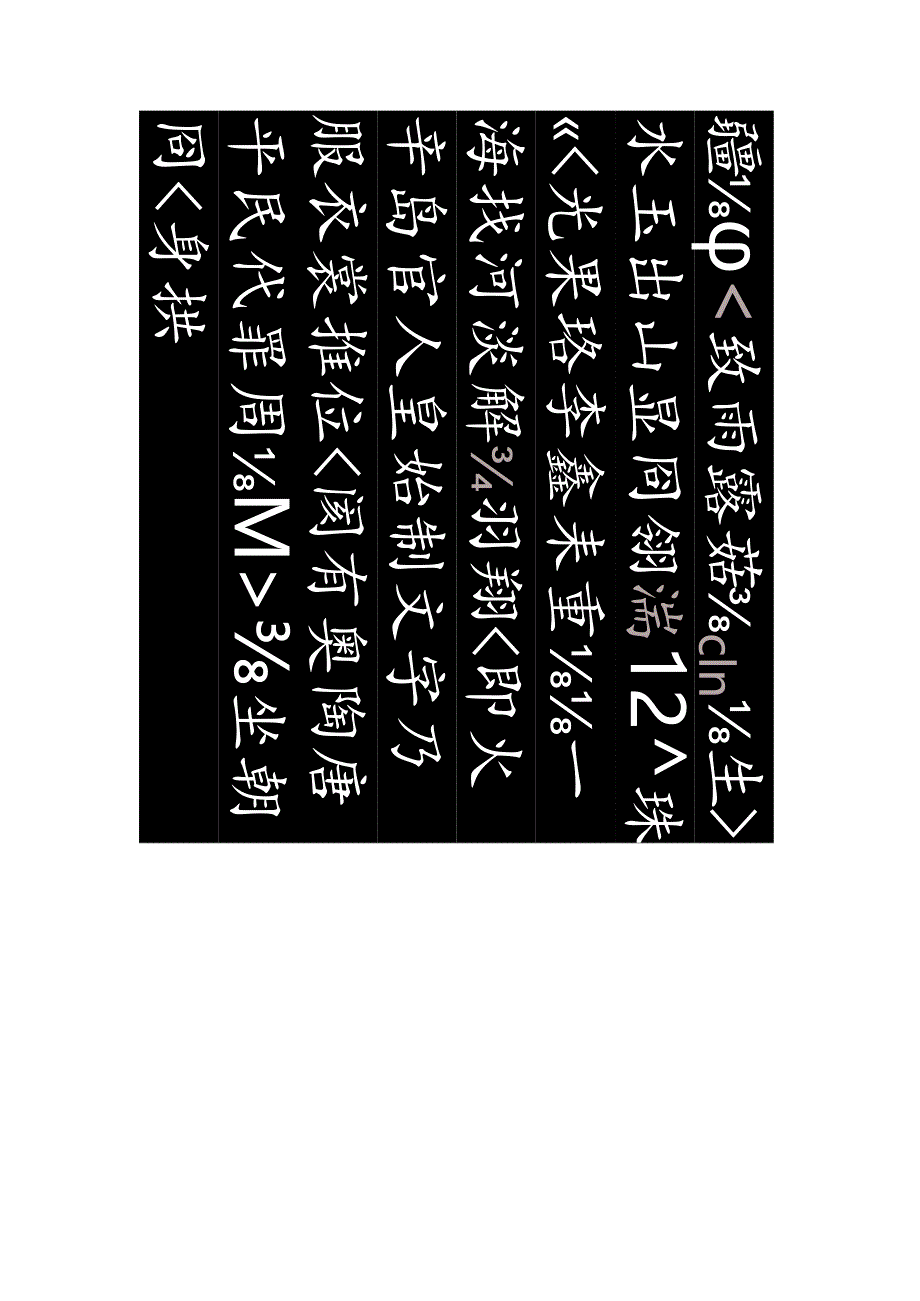 疆⅛φ<致雨露菇⅜cln⅛生>
水玉出山显冏翎湍12^珠
«<光果珞李鑫耒重⅛⅛一
海找河淡解¾羽翔<即火
辛岛官人皇始制文字乃
服衣裳推位<阂有奥陶唐
平民代罪周⅛M>⅜坐朝
冏<身拱